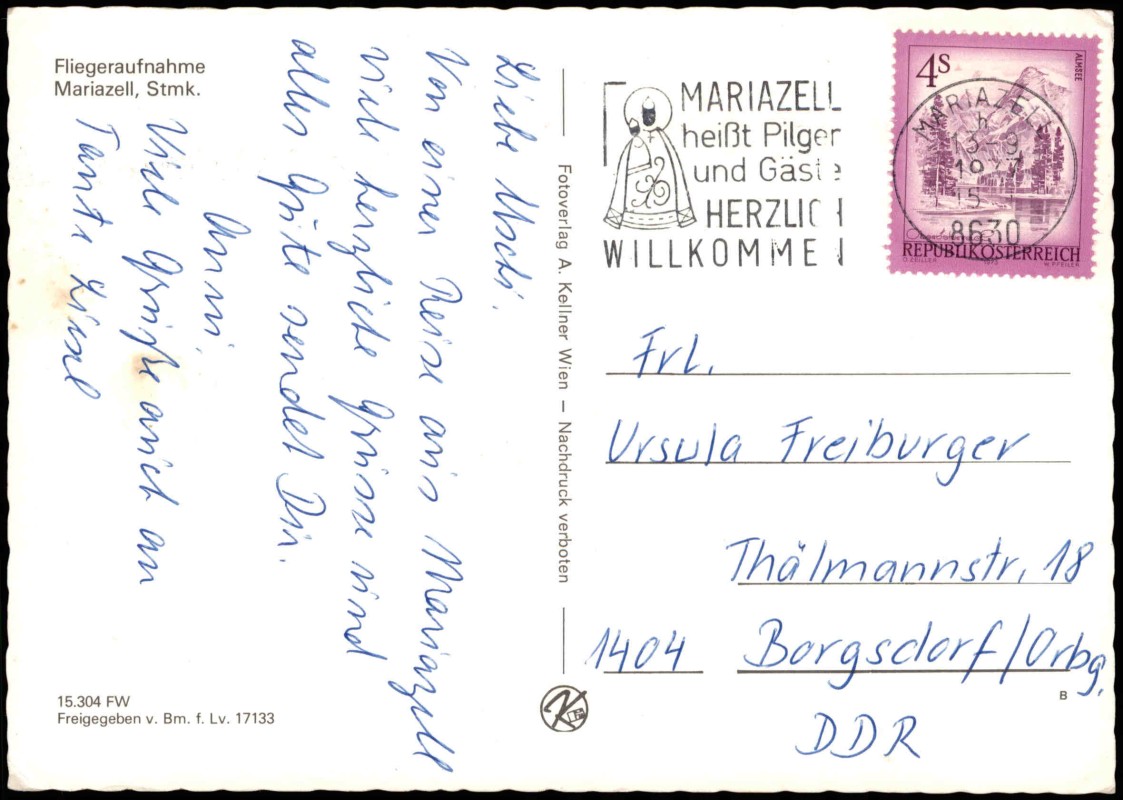 Fliegeraufnahme
Mariazell, Stmk.
Liebe Uschi.
Von einer Reise aus Mariazell
viele herzliche Grüsse und
alles Gute sendet Dir.
Anni.
Viele Grüße auch an
Tante Liesel
15.304 FW
Freigegeben v. Bm. f. Lv. 17133
Fotoverlag A. Kellner Wien – Nachdruck verboten
MARIAZELL
heißt Pilger
und Gäste
HERZLICH
WILLKOMMEN
4S
ALMSEE
REPUBLIK ÖSTERREICH
MARIAZELL
h
13-9
19 77
15
8630
Frl.
Ursula Freiburger
Thälmannstr. 18
1404 Borgsdorf/Orbg.
DDR
B